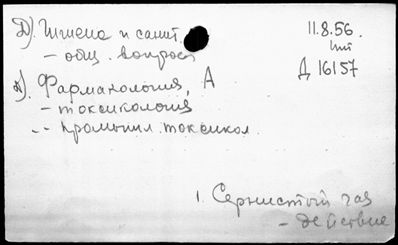 Д). Гигиена и санит.
11.8.56.
- общ. вопросы
Д 16157
А). Фармакология, А
- токсикология
-- промышл. токсикол.
1. Сернистый газ
- действие